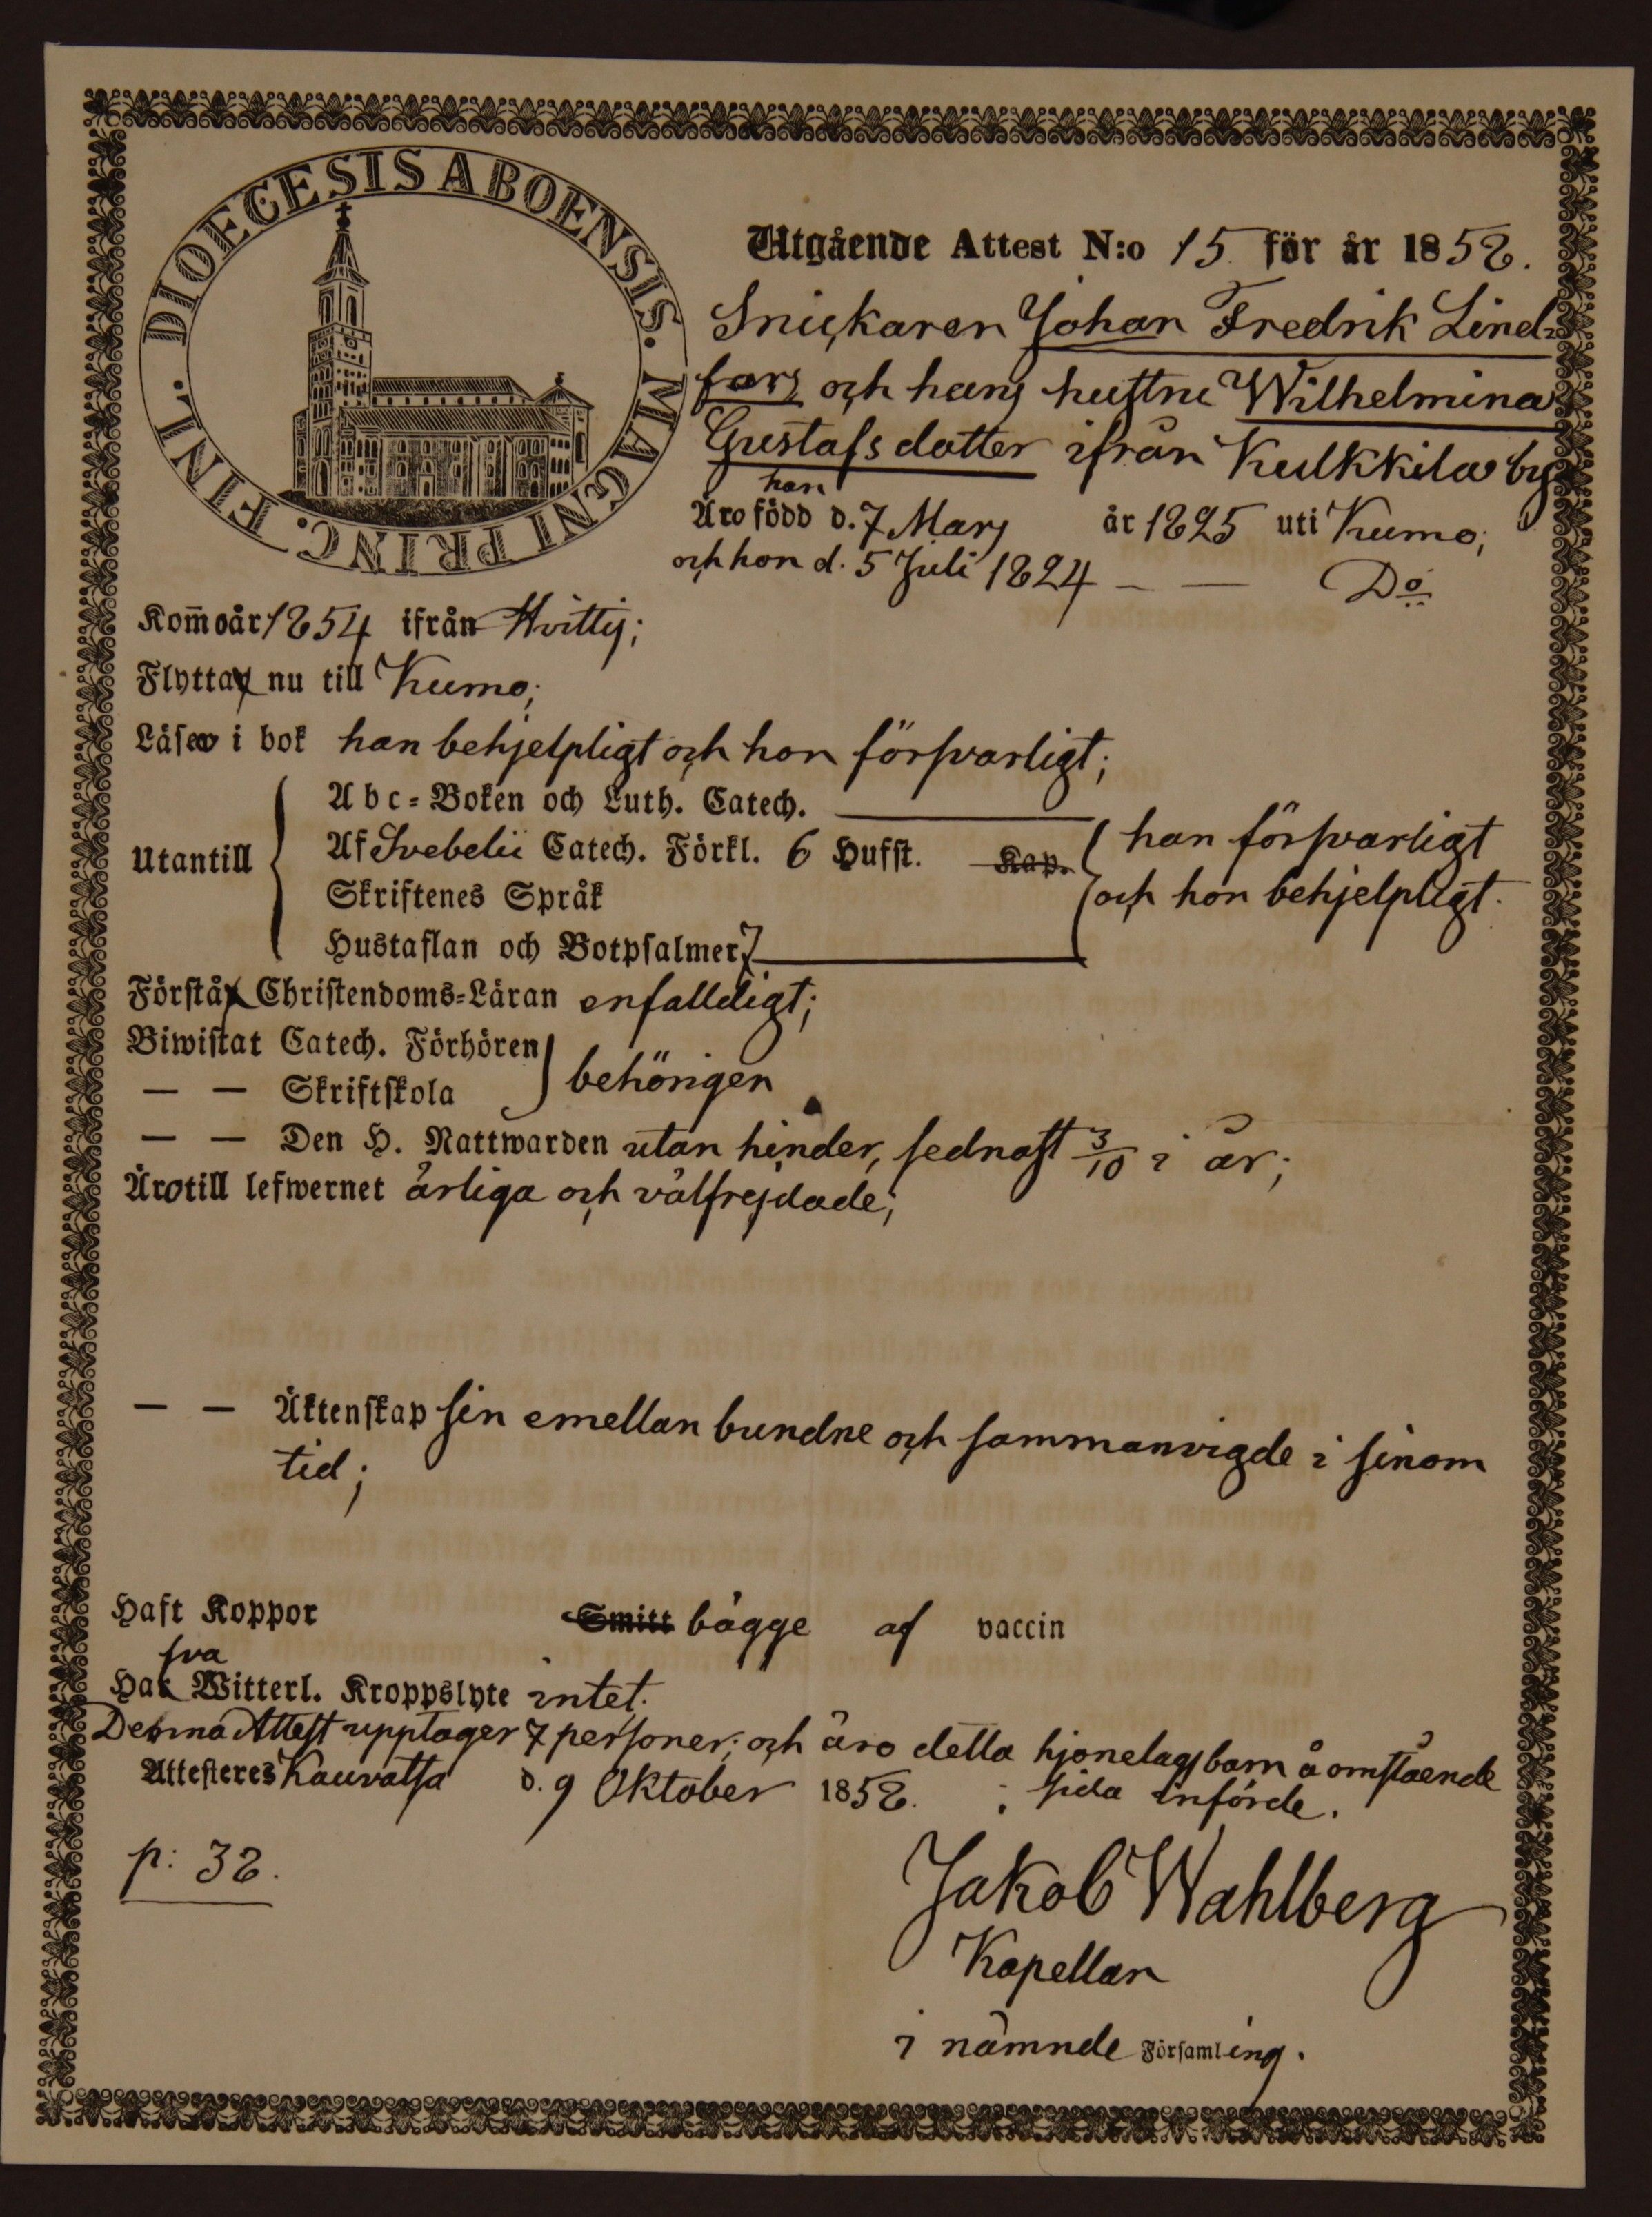 DIOECESIS ABOENSIS. MAGNI PRINC. FINL.
Utgående Attest N:o 15 för år 1858.
Snickaren Johan Fredrik Lind=
fors och hans hustru Wilhelmina
Gustafsdotter ifrån Kulkkila by
han
Äro född d. 7 Mars år 1825 uti Kumo;
och hon d. 5 Juli 1824 — — Do
Kom̅o år 1854 ifrån Hvittis;
Flytta nu till Kumo;
Läsa i bok han behjelpligt och hon försvarligt;
Abc=Boken och Luth. Catech.
Utantill
Af Svebelii Catech. Förkl. 6 Hufst. Kap.
han försvarligt
Skriftenes Språk
och hon behjelpligt.
Hustaflan och Botpsalmer
Förstå Christendoms=Läran enfalldigt;
Biwistat Catech. Förhören
— — Skriftskola
behörigen
— — Den H. Nattwarden utan hinder, sednast 3/10 i år;
Äro till lefwernet ärliga och välfrejdade;
— — Äktenskap sin emellan bundne och sammanvigde i sinom
tid;
Haft Koppor Smitt bägge af vaccin
sva
Ha Witterl. Kroppslyte intet.
Denna Attest upptager 7 personer; och äro detta hjonelags barn å omstående
sida införde.
Attesteres Kauvatsa d. 9 Oktober 1858.
p: 38.
Jakob Wahlberg
Kapellan
i nämnde Församling.